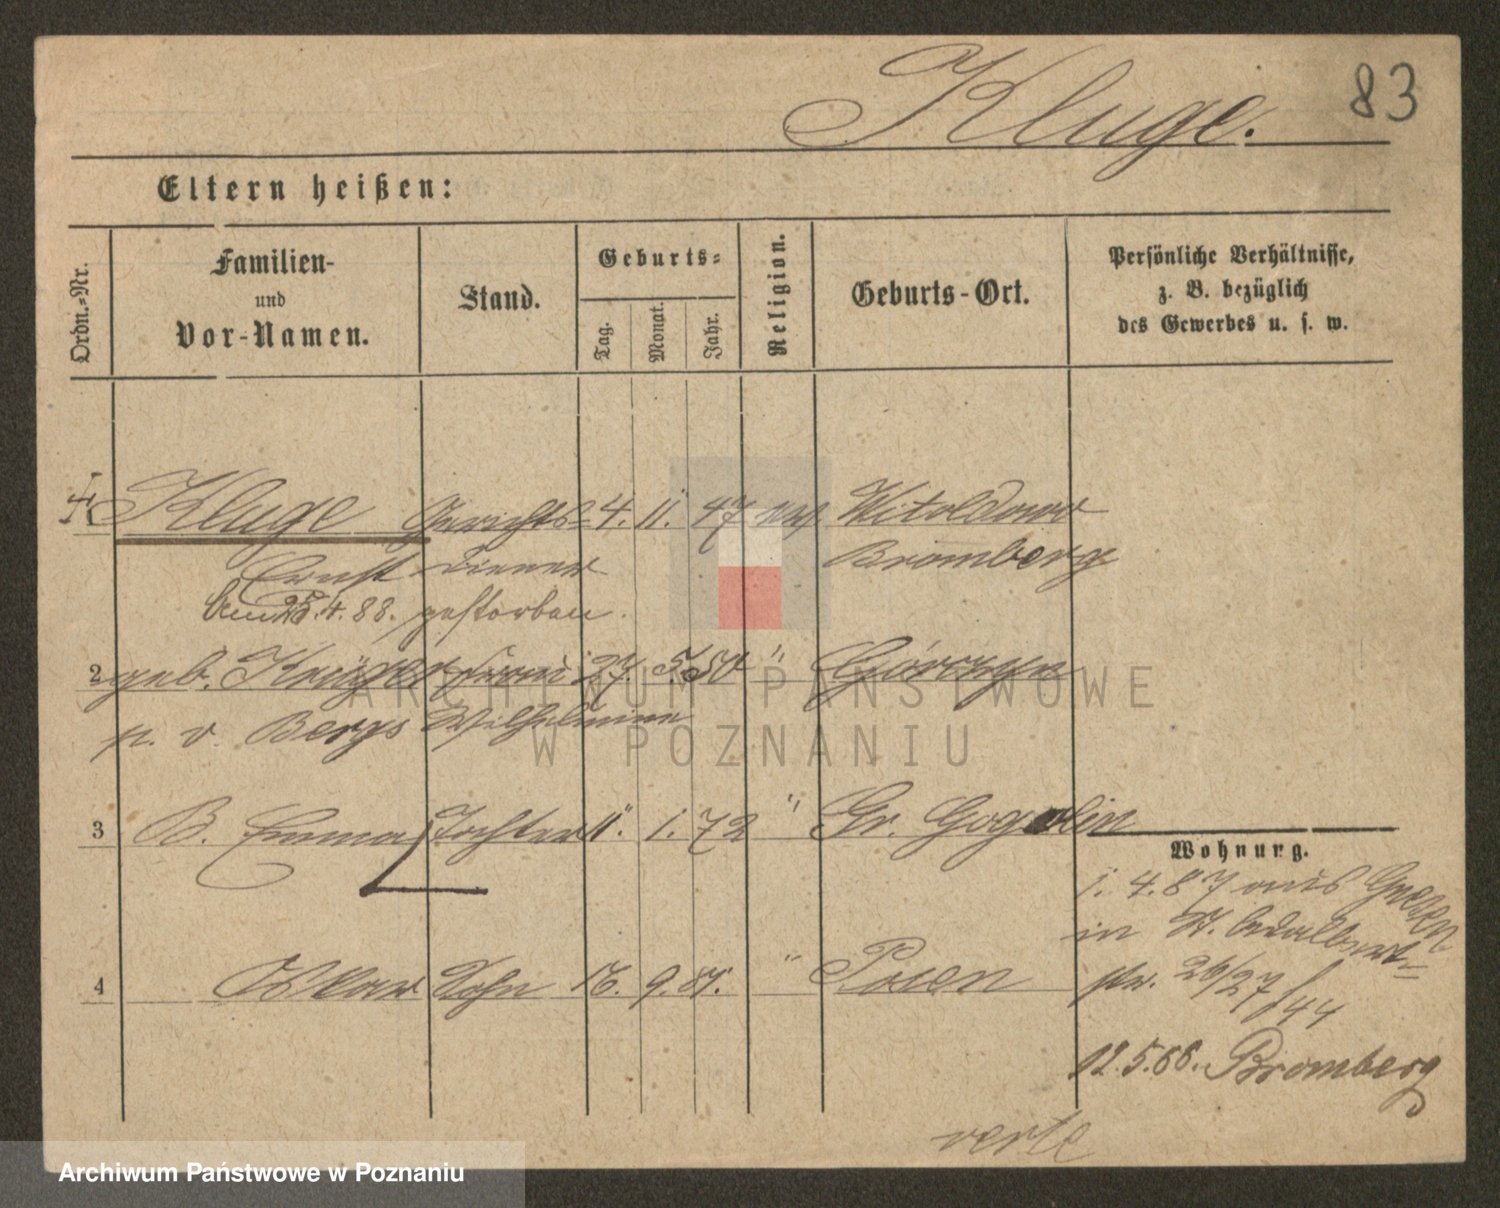 Kluge. 83
Eltern heißen:
Ordn.-Nr.
Familien-
und
Vor-Namen.
Stand.
Geburts-
Tag.
Monat.
Jahr.
Religion.
Geburts-Ort.
Persönliche Verhältnisse,
z. B. bezüglich
des Gewerbes u. s. w.
Kluge Gerichts- 4. 11. 47 Witoldowo
Ernst diener Bromberg
am 25.4.88. gestorben.
2 geb. Krüger Frau 27. 5. 50 "
n. v. Wilhelmine
3 B. Emma Tochter 11. 1. 72 " Gr. Gogolin
4 Oskar Sohn 16. 9. " Posen
Wohnung.
1. 4. 87 aus Gnesen
in St. Adalbert-
str. 26/27/44
12.5.88. Bromberg
verte
ARCHIWUM PAŃSTWOWE
W POZNANIU
Archiwum Państwowe w Poznaniu